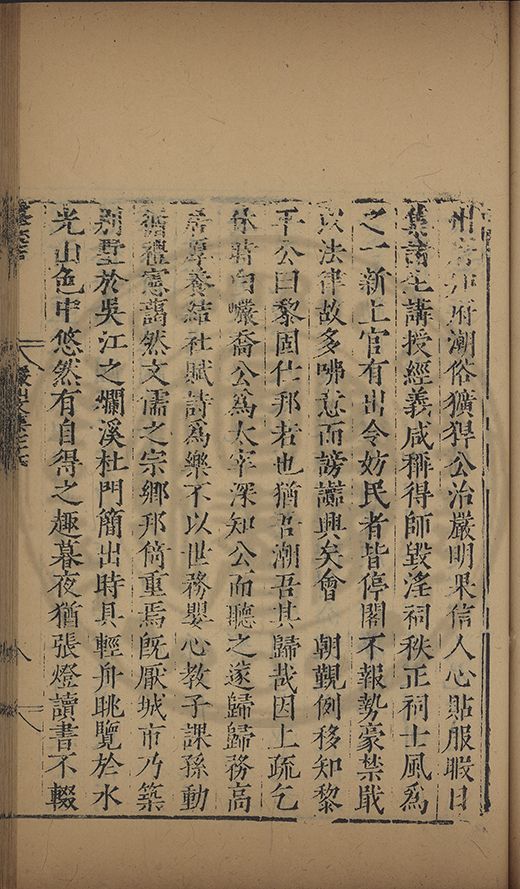 州治郡府潮俗獷猂公治嚴明果信人心貼服暇日
集諸生講授經義咸稱得師毀淫祠秩正祠士風爲
之一新上官有出令妨民者皆停閣不報勢豪禁戢
以法律故多咈意而謗讟興矣會 朝覲例移知黎
平公曰黎固仕邦若也猶吾潮吾其歸哉因上疏乞
休時白巖喬公爲太宰深知公而聽之遂歸歸務高
居厚養結社賦詩爲樂不以世務嬰心教子課孫動
循禮憲藹然文儒之宗鄉邦倚重焉旣厭城市乃築
別墅於吳江之爛溪杜門簡出時具輕舟眺覽於水
光山色中悠然有自得之趣暮夜猶張燈讀書不輟